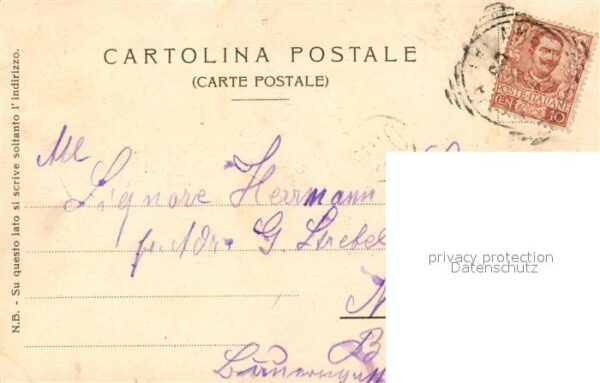 CARTOLINA POSTALE
(CARTE POSTALE)
N.B. - Su questo lato si scrive soltanto l'indirizzo.
POSTE ITALIANE
10
All
Signore Herrmann
p. Adr. G. Strebel
N
B
privacy protection
Datenschutz